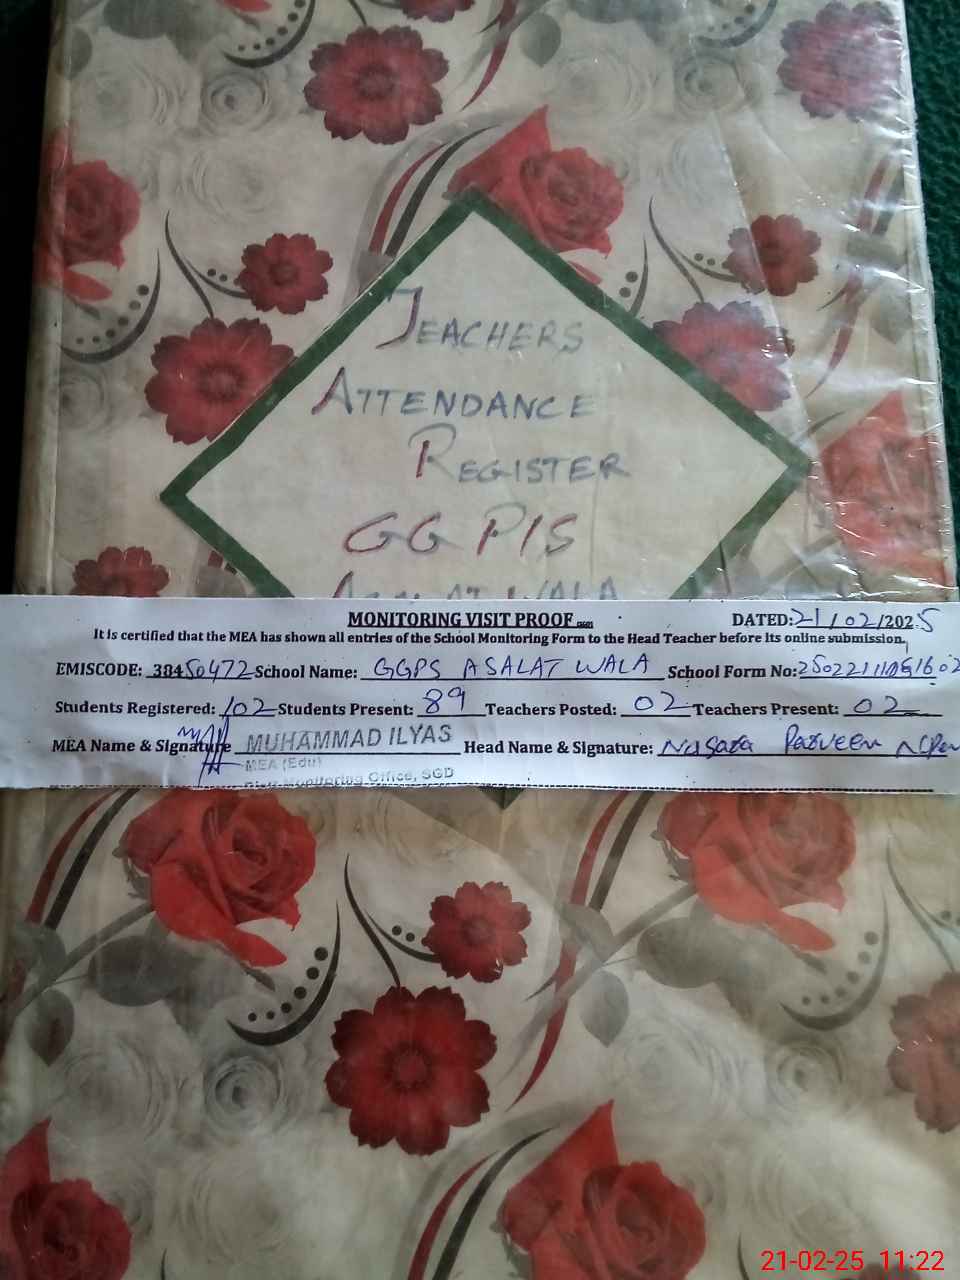 TEACHERS
ATTENDANCE
REGISTER
GG P/S
WALA
MONITORING VISIT PROOF
DATED: 21/02/2025
It is certified that the MEA has shown all entries of the School Monitoring Form to the Head Teacher before its online submission.
EMISCODE: 38450472 School Name: GGPS ASALAT WALA School Form No:
Students Registered: 102 Students Present: 89 Teachers Posted: 02 Teachers Present: 02
MEA Name & Signature MUHAMMAD ILYAS Head Name & Signature: Parveen
MEA (Edu)
Monitoring Office, SGD
21-02-25 11:22